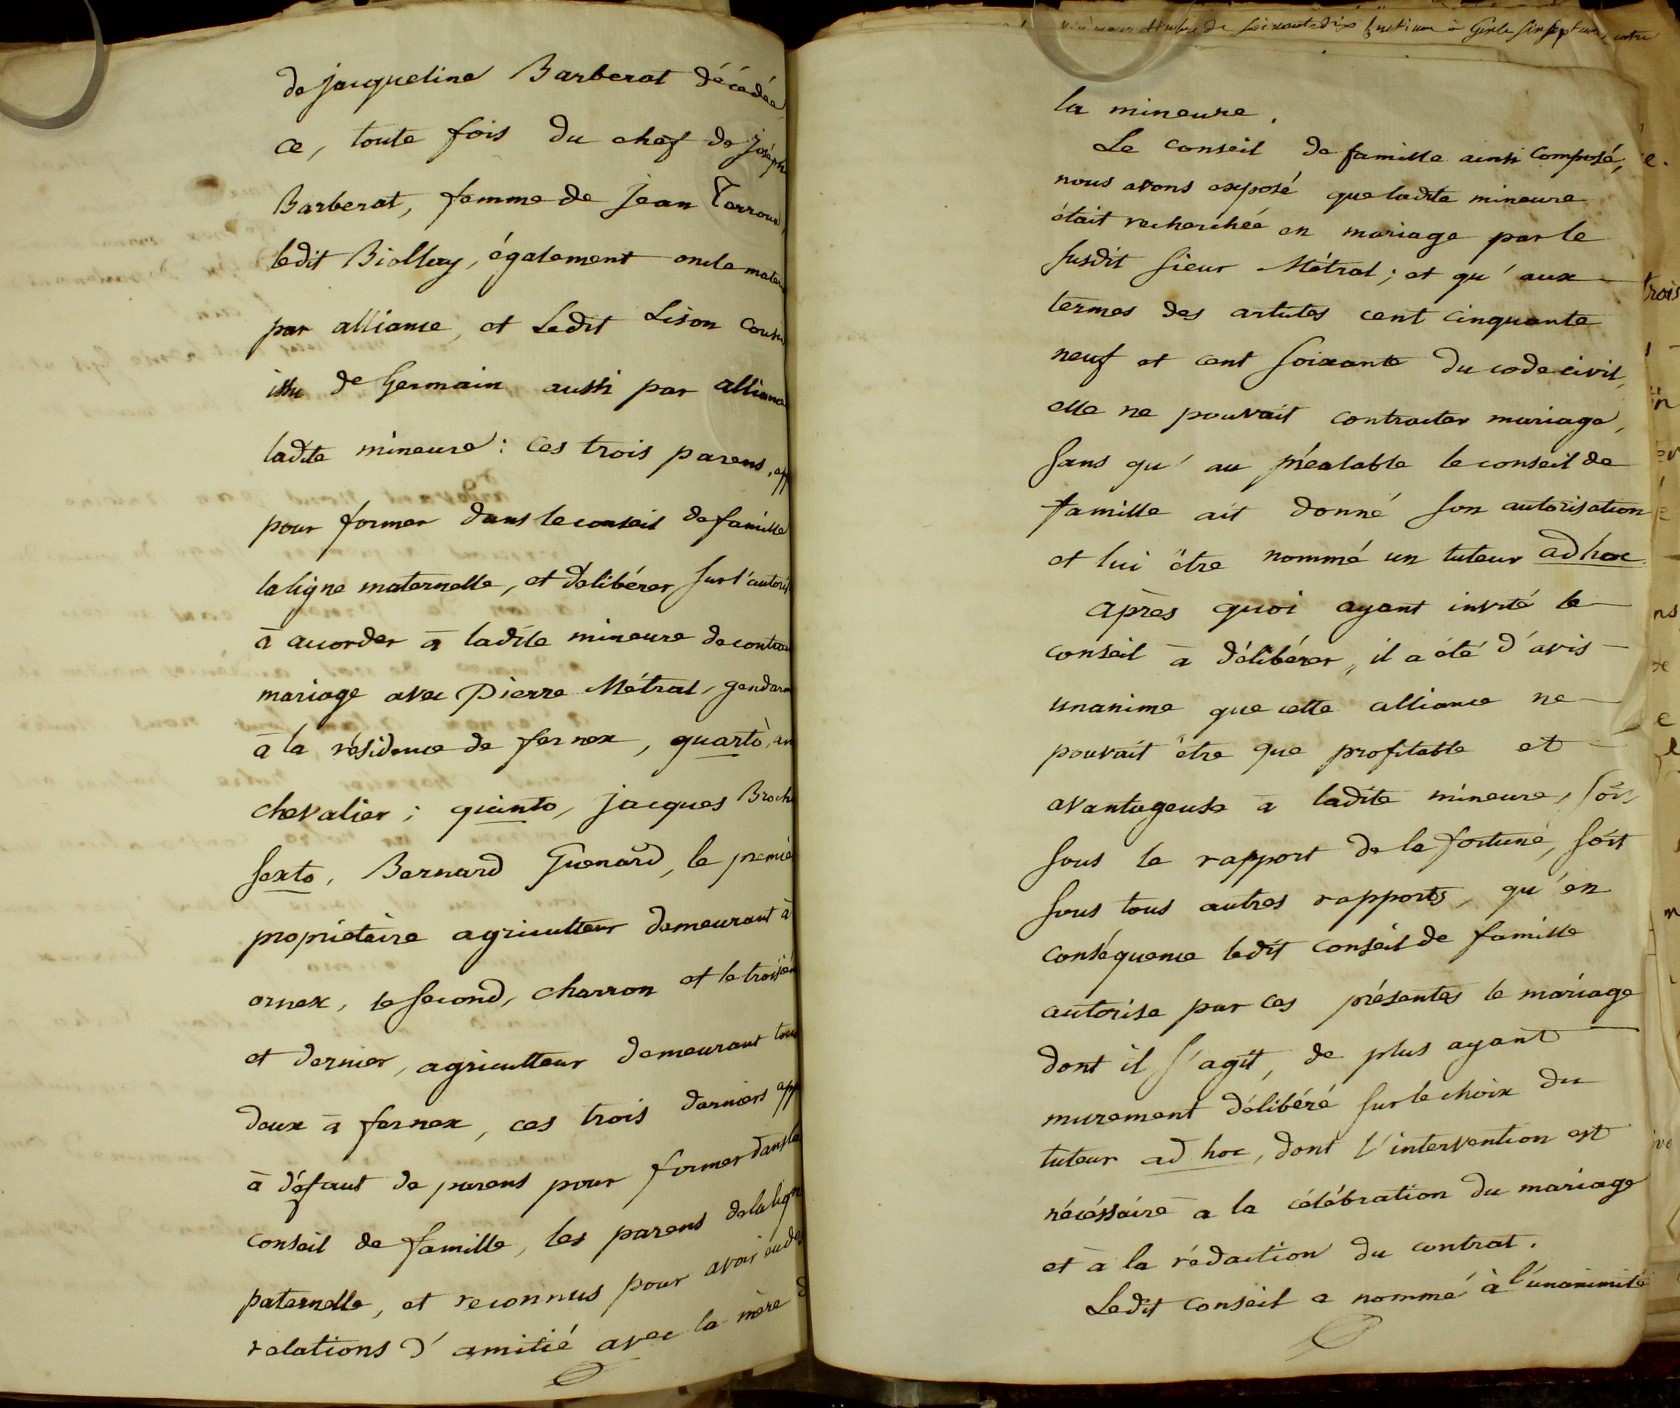 de jacqueline Barberat décédée
ce, toute fois du chef de joseph
Barberat, femme de jean Terroux,
ledit Biollay, également oncle mater
par alliance, et Ledit Lison Cousi
issu de Germain aussi par alliance
ladite mineure : ces trois parens, app
pour former dans le conseil de famille
la ligne maternelle, et délibérer sur l'autori
à accorder à ladite mineure de contrac
mariage avec Pierre Métral, gendarm
à la résidence de fernex, quarto,
chevalier ; quinto, jacques Broch
sexto, Bernard Guenard, le premie
propriétaire agriculteur demeurant à
ornex, le second, charron et le troisiè
et dernier, agriculteur demeurant tous
deux à fernex, ces trois derniers app
à défaut de parens pour former dans le
conseil de famille, les parens de la lign
paternelle, et reconnus pour avoir eu des
relations d'amitié avec la mère d
la mineure.
Le conseil de famille ainsi composé,
nous avons exposé que ladite mineure
était recherchée en mariage par le
susdit sieur Métral ; et qu'aux
termes des articles cent cinquante
neuf et cent soixante du code civil,
elle ne pouvait contracter mariage,
sans qu'au préalable le conseil de
famille ait donné son autorisation
et lui être nommé un tuteur ad hoc.
après quoi ayant invité le
conseil à délibérer, il a été d'avis
unanime que cette alliance ne
pouvait être que profitable et
avantageuse à ladite mineure, soit
sous le rapport de la fortune, soit
sous tous autres rapports, qu'en
conséquence ledit conseil de famille
autorise par ces présentes le mariage
dont il s'agit, de plus ayant
murement délibéré sur le choix du
tuteur ad hoc, dont l'intervention est
nécéssaire à la célébration du mariage
et à la rédaction du contrat.
Ledit conseil a nommé à l'unanimité